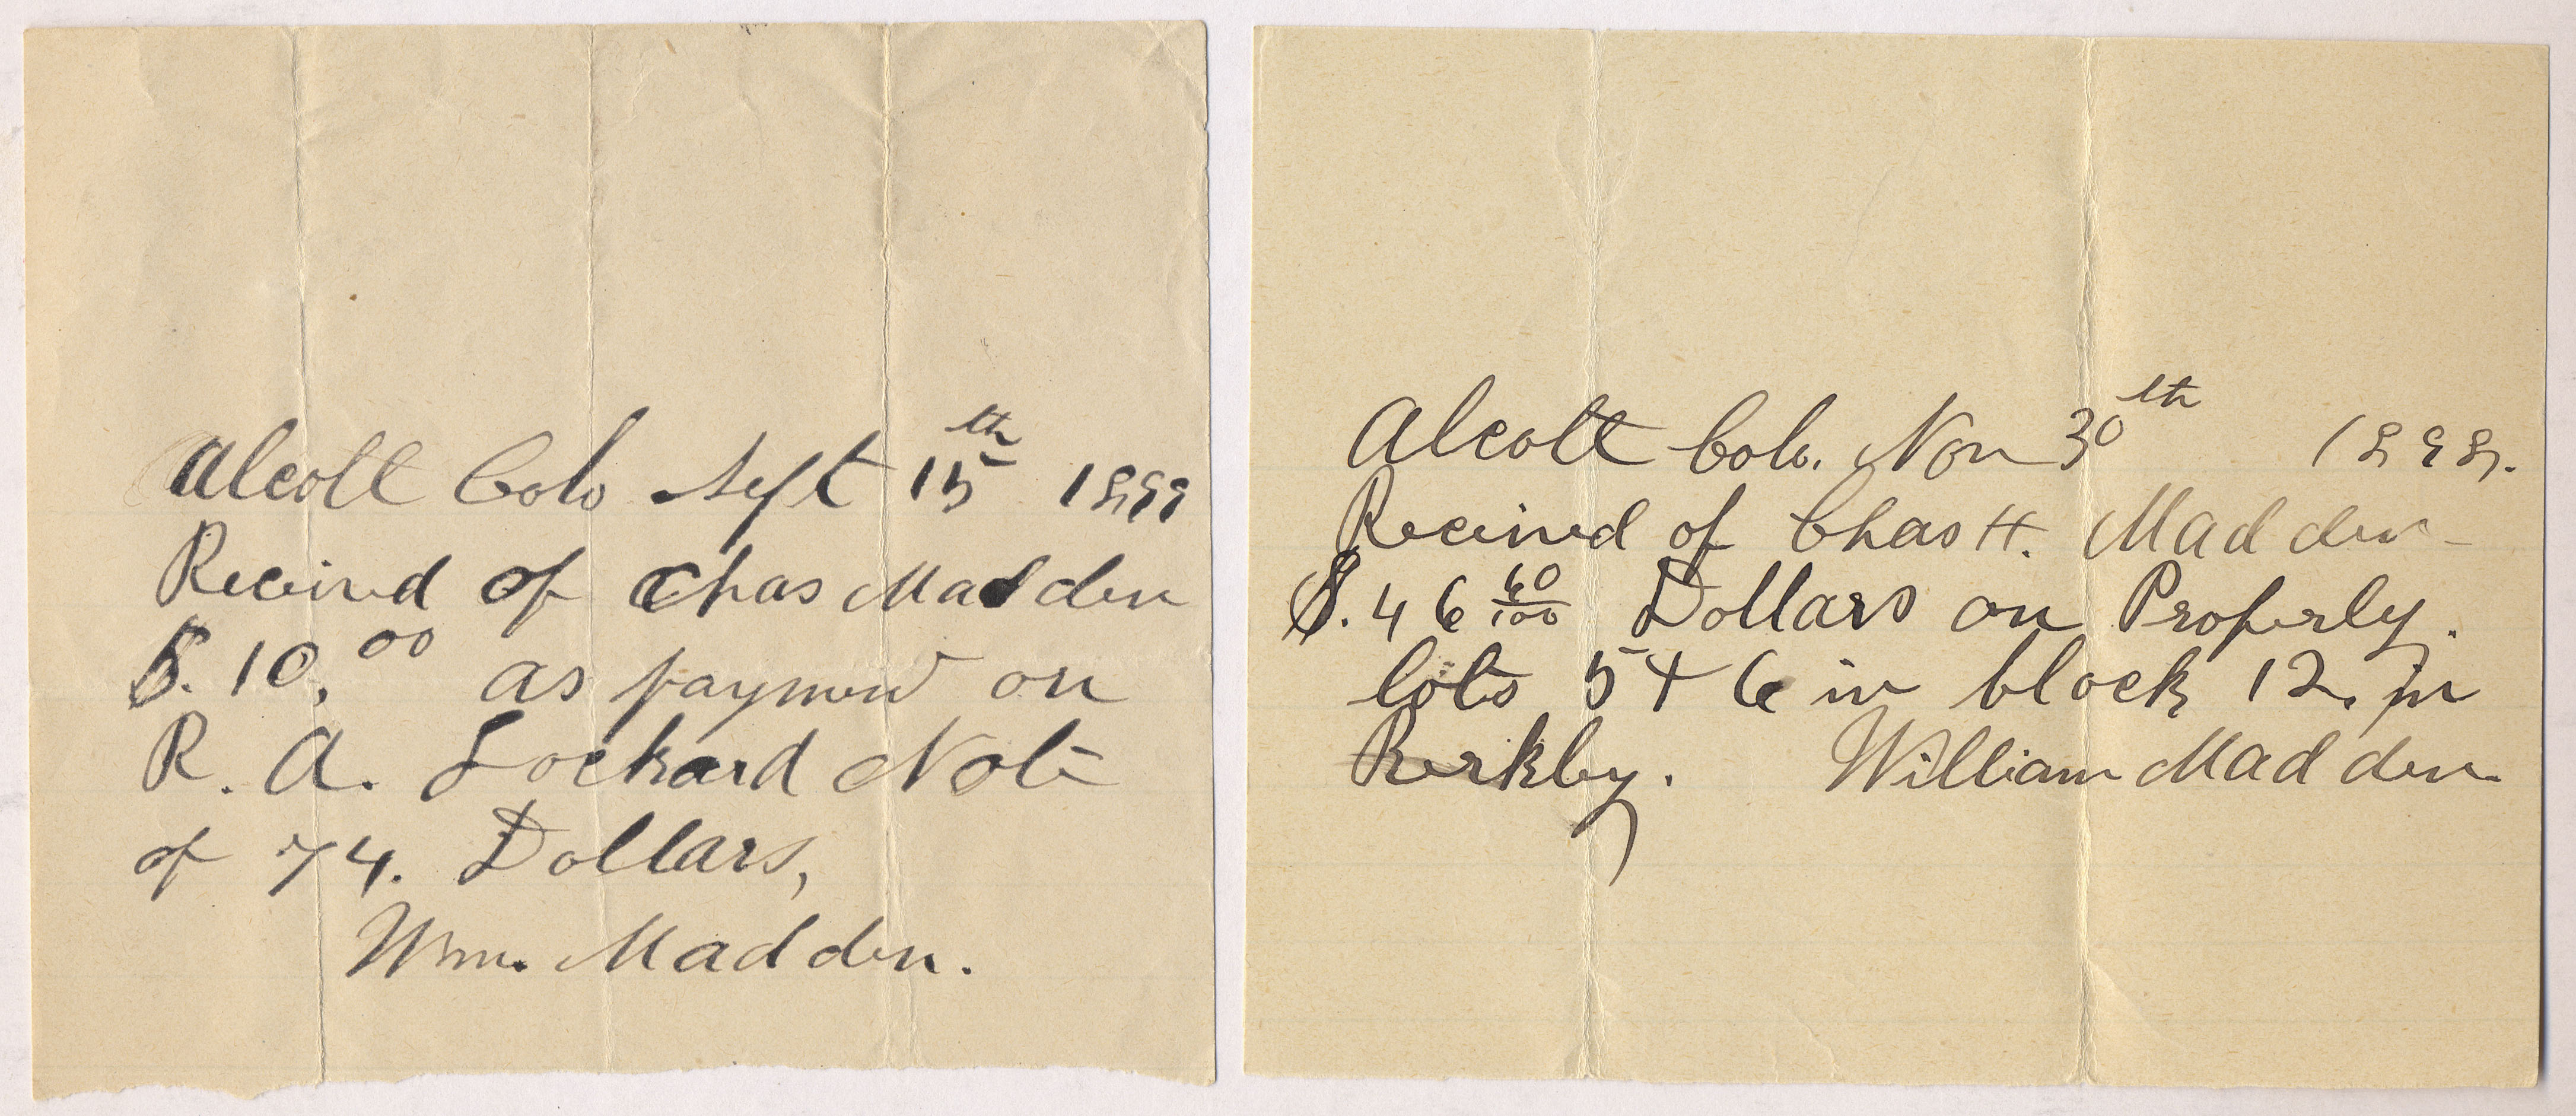 Alcott Colo Sept 15th 1899
Received of Chas Madden
$.10.00 as payment on
R. A. Lockard Note
of 74. Dollars,
Wm. Madden.
Alcott Colo. Nov 30th 1898.
Received of Chas H. Madden
$.46 60/100 Dollars on Property.
lots 5 + 6 in block 12. in
Berkley. William Madden